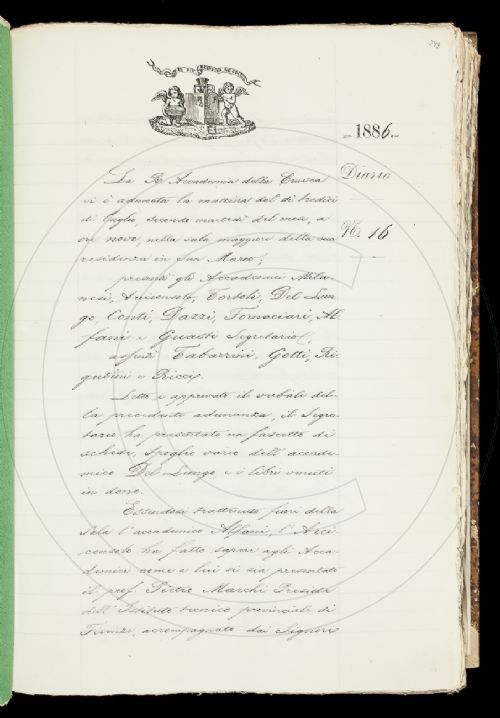 249
IL PIÙ BEL FIOR NE COGLIE
1886
Diario
N.° 16
La R. Accademia della Crusca
si è adunata la mattina del dì tredici
di luglio, secondo martedì del mese, a
ore nove, nella sala maggiore della sua
residenza in San Marco;
presenti gli Accademici Mila-
nesi, Arciconsolo, Tortoli, Del Lun-
go, Conti, Dazzi, Fornaciari, Al-
fani e Guasti Segretario;
assenti Tabarrini, Gotti, Ri-
gutini e Ricci.
Letto e approvato il verbale del-
la precedente adunanza, il Segre-
tario ha presentato un fascetto di
schede, spoglio vario dell'accade-
mico Del Lungo, e i libri venuti
in dono.
Essendosi trattenuto fuori della
Sala l'accademico Alfani, l'Arci-
consolo ha fatto sapere agli Acca-
demici come a lui si sia presentato
il prof. Pietro Marchi Preside
dell'Istituto tecnico provinciale di
Firenze, accompagnato dai Signori